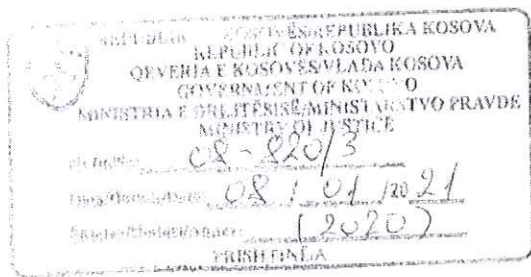 KOSOVËS/REPUBLIKA KOSOVA
REPUBLIC OF KOSOVO
QEVERIA E KOSOVËS/VLADA KOSOVA
GOVERNMENT OF KOSOVO
MINISTRIA E DREJTËSISË/MINISTARSTVO PRAVDE
MINISTRY OF JUSTICE
08-820/3
08/01/2021
(2020)
PRISHTINË/A